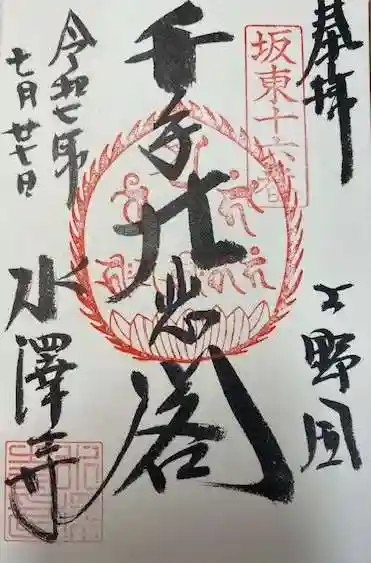 奉拝
坂東十六番
上野国
千手大悲閣
令和七年
七月廿七日
水澤寺